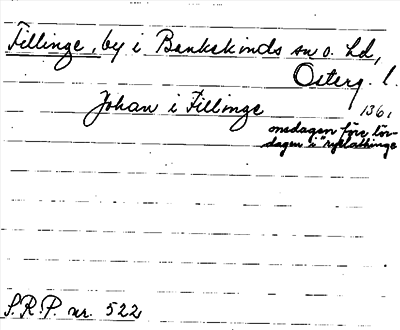 Fillinge, by i Bankekinds sn o. hd,
Österg. l.
Johan i Fillinge 1361
onsdagen före lör-
dagen i
S.R.P. nr. 522